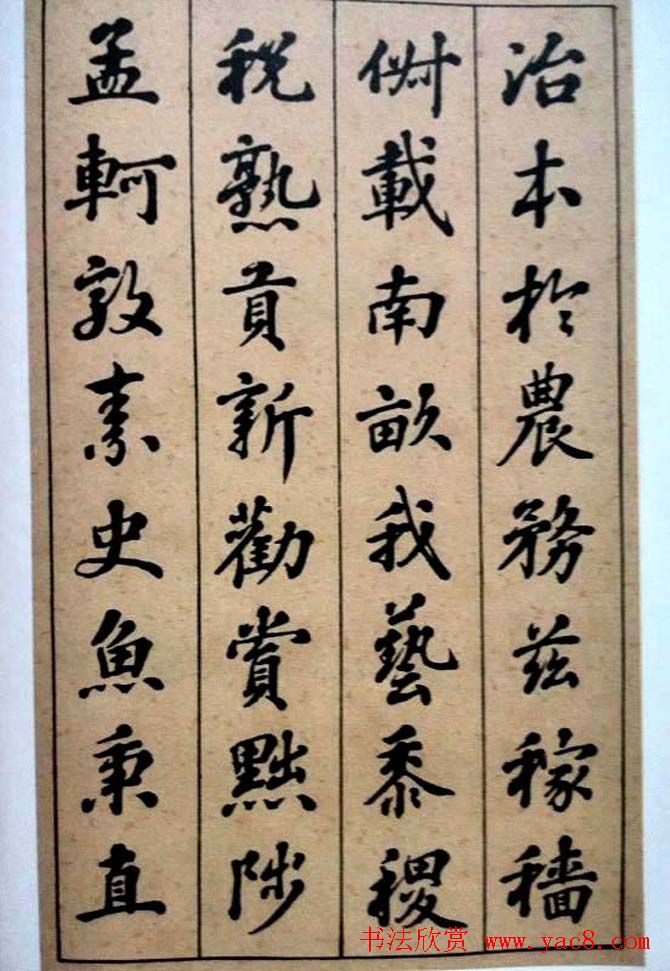 治本於農務茲稼穡
俶載南畝我藝黍稷
稅熟貢新勸賞黜陟
孟軻敦素史魚秉直
书法欣赏 www.yac8.com